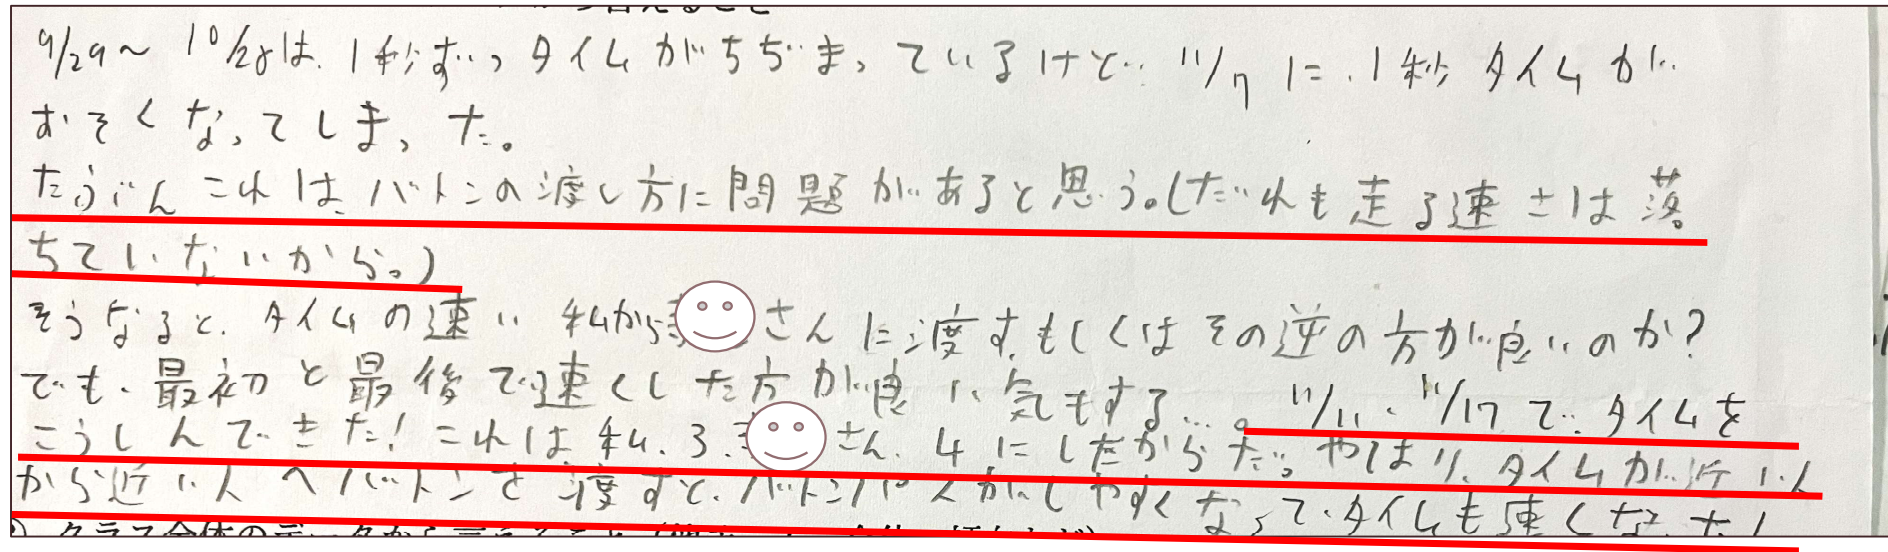 9/29～10/28は、1秒ずつタイムがちぢまっているけど、11/7に、1秒タイムが
おそくなってしまった。
たぶんこれは、バトンの渡し方に問題があると思う。(だれも走る速さは落
ちていないから。)
そうなると、タイムの速い私からさんに渡す、もしくはその逆の方が良いのか?
でも、最初と最後で速くした方が良い気もする...。11/11、11/17で、タイムを
こうしんできた!これは私、3、さん、4にしたからだ。やはり、タイムが近い人
から近い人へバトンを渡すと、バトンパスがしやすくなって、タイムも速くなった!
クラス全体のデータから